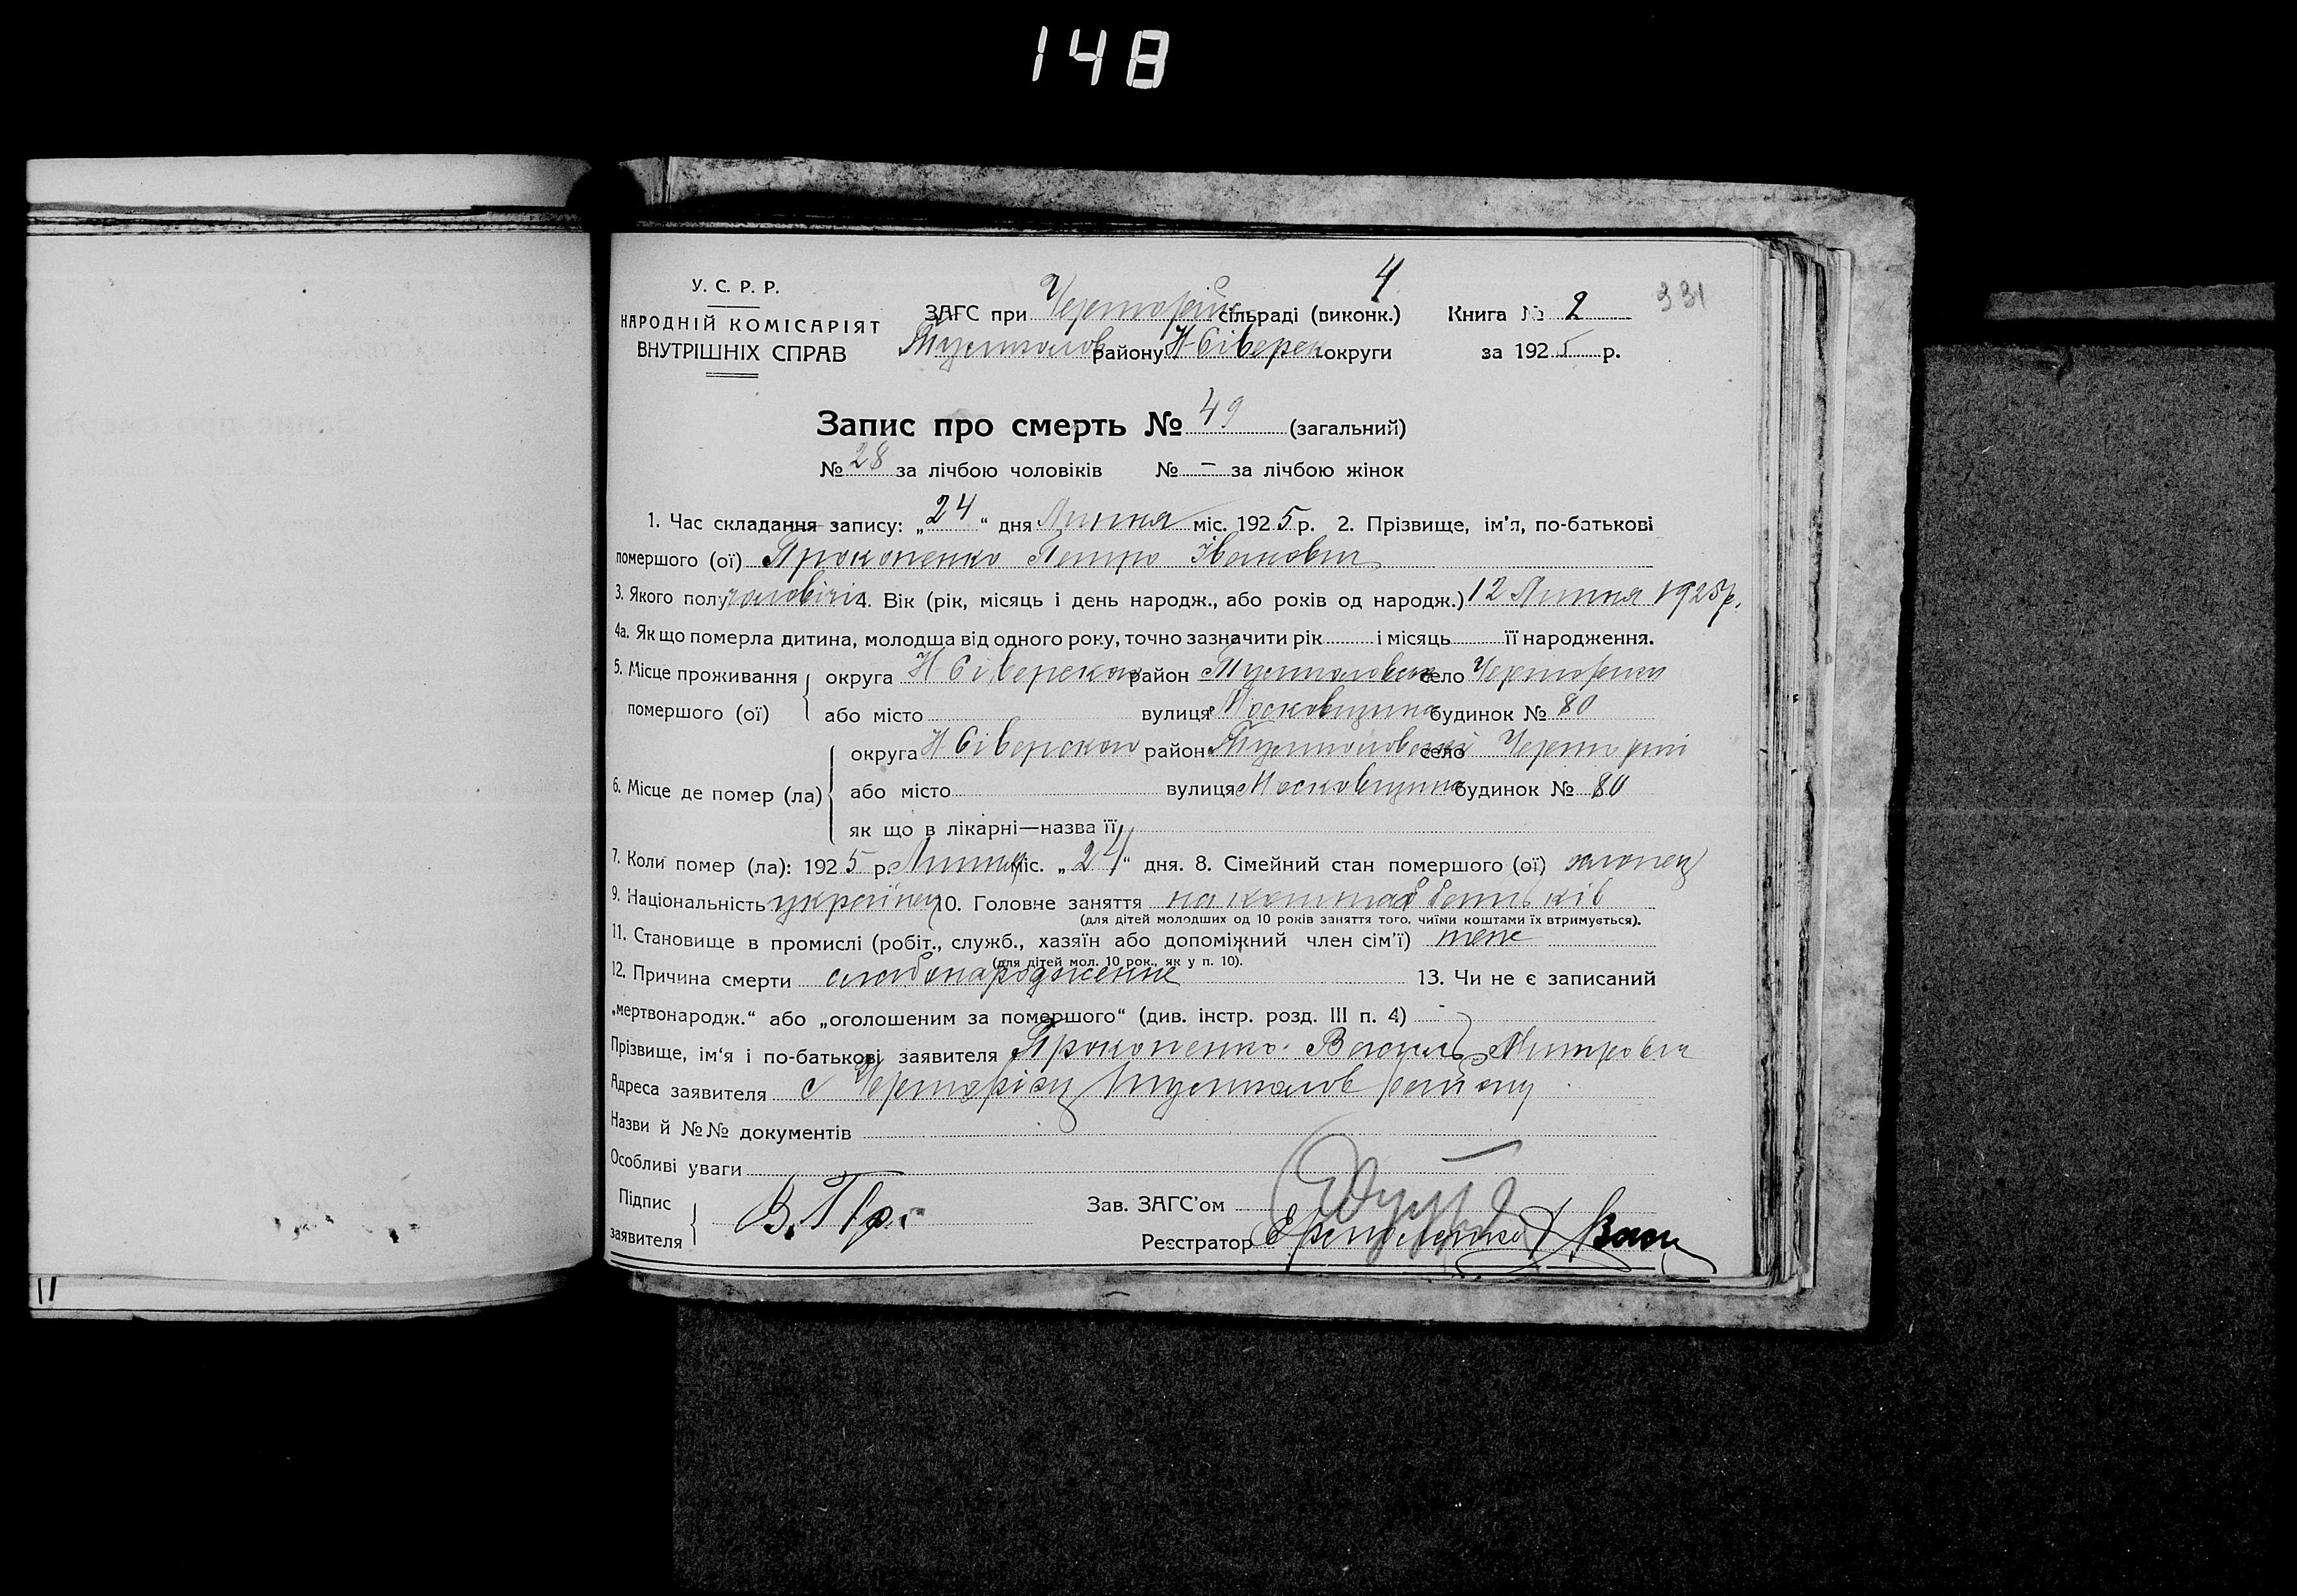 148
4
У. С. Р. Р.
НАРОДНІЙ КОМІСАРІЯТ
ВНУТРІШНІХ СПРАВ
ЗАГС при Черторійс сільраді (виконк.)
Тулиголов району Н-Сіверск округи
Книга № 2
за 1925 р.
331
Запис про смерть № 49 (загальний)
№ 28 за лічбою чоловіків № — за лічбою жінок
1. Час складання запису: „24“ дня Липня міс. 1925 р. 2. Прізвище, ім'я, по-батькові
помершого (ої) Прокопенко Петро Іванович
3. Якого полу чоловічі 4. Вік (рік, місяць і день народж., або років од народж.) 12 Липня 1925 р.
4а. Як що померла дитина, молодша від одного року, точно зазначити рік і місяць її народження.
5. Місце проживання помершого (ої) округа Н Сіверско район Тулиголовско село Чертории
або місто вулиця Московщина будинок № 80
6. Місце де помер (ла) округа Н Сіверско район Тулиголовскі село Чертории
або місто вулиця Московщина будинок № 80
як що в лікарні—назва її
7. Коли помер (ла): 1925 р. Липня міс. „24“ дня. 8. Сімейний стан помершого (ої) хлопец
9. Національність украінец 10. Головне заняття на коштах батьків
(для дітей молодших од 10 років заняття того, чиїми коштами їх втримується).
11. Становище в промислі (робіт., служб., хазяїн або допоміжний член сім'ї) теж
(для дітей мол. 10 рок., як у п. 10).
12. Причина смерти слабонародження 13. Чи не є записаний
„мертвонародж.“ або „оголошеним за помершого“ (див. інстр. розд. III п. 4) -
Прізвище, ім'я і по-батькові заявителя Прокопенко Василь Митрович
Адреса заявителя с Черторіги Тулиголов району
Назви й №№ документів
Особливі уваги
Підпис заявителя В. Пр.
Зав. ЗАГС'ом
Реєстратор
11